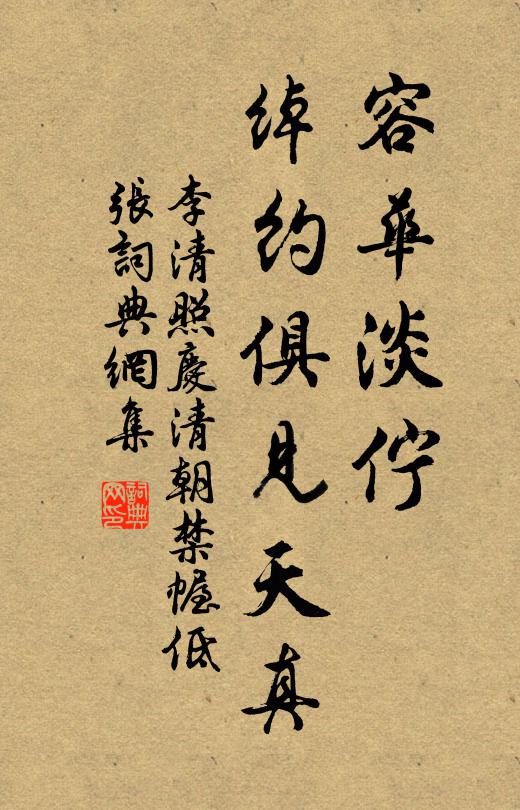 容華淡佇
綽約俱見天真
李清照慶清朝禁幄低
張詞典網集
詞典
网印